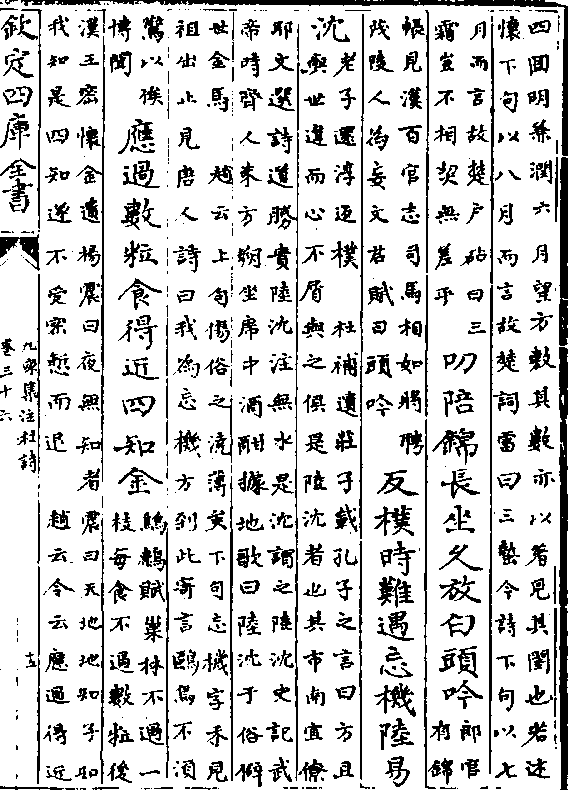 四圓明兼潤六月望方數其數亦以著見其閏也若述
懷下句以八月而言故楚詞當曰三蟄今詩下句以七
月而言故楚户砧曰三
霜豈不相契無差乎
叨陪錦長坐久放白頭吟
郎官
有錦
帳見漢百官志司馬相如將聘
茂陵人為妾文君賦曰頭吟
反樸時難遇忘機陸易
沈
老子還淳返樸 杜補遺莊子載孔子之言曰方且
與世違而心不屑與之俱是陸沈者也其市南宜僚
耶文選詩道勝貴陸沈注無水是沈謂之陸沈史記武
帝時齊人東方朔坐席中酒酣據地歌曰陸沈于俗僻
世金馬 趙云上句傷俗之澆薄矣下句忘機字未見
祖出止見唐人詩曰我為忘機方到此寄言鷗鳥不須
驚以俟
博聞
應過數粒食得近四知金
鷦鷯賦巢林不過一
枝每食不過數粒後
漢王密懷金遺楊震曰夜無知者震曰天地地知子知
我知是四知遂不受密慙而退 趙云今云應過得近
欽定四庫全書
九家集注杜詩
卷三十六